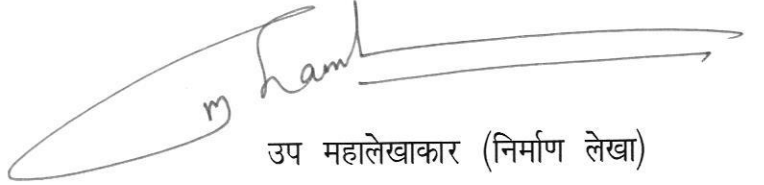 उप महालेखाकार (निर्माण लेखा)